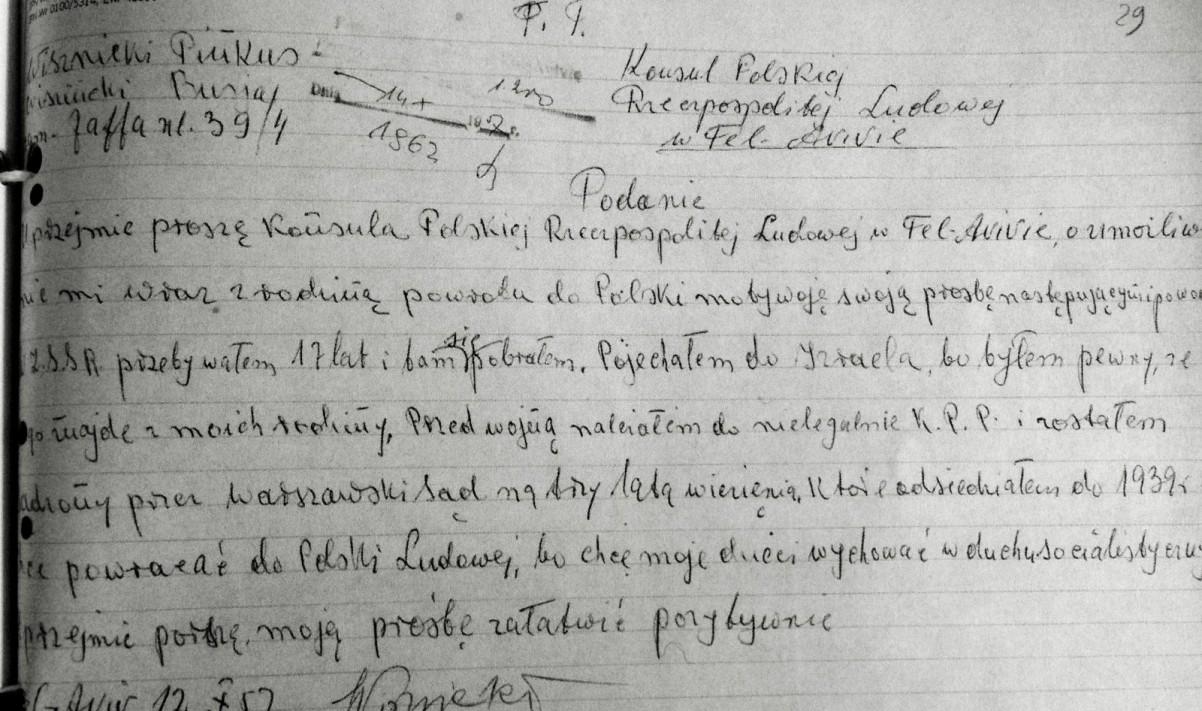 29
P. T.
Wisznicki Pinkus
Konsul Polskiej
Busiaj
Rzeczpospolitej Ludowej
Jaffa ul. 39/4
w Tel-Avivie
1962
Podanie
przejmie proszę Konsula Polskiej Rzeczpospolitej Ludowej w Tel-Avivie, o umożliw
nie mi wraz z rodziną powrotu do Polski motywoję swoją prośbę następującymi powo
Z.S.S.R przebywałem 17 lat i tam się pobrałem. Pojechałem do Izraela, bo byłem pewny, że
znajdę z moich rodziny, Przed wojną należałem do nielegalnie K.P.P. i zostałem
adzony przez Warszawski Sąd na trzy lata więzienia, które odsiedziałem do 1939r
powracać do Polski Ludowej, bo chcę moje dzieci wychować w duchu socialistyczny
przejmie porszę, moją prośbę załatwić pozytywnie
Aviv 12 X 57